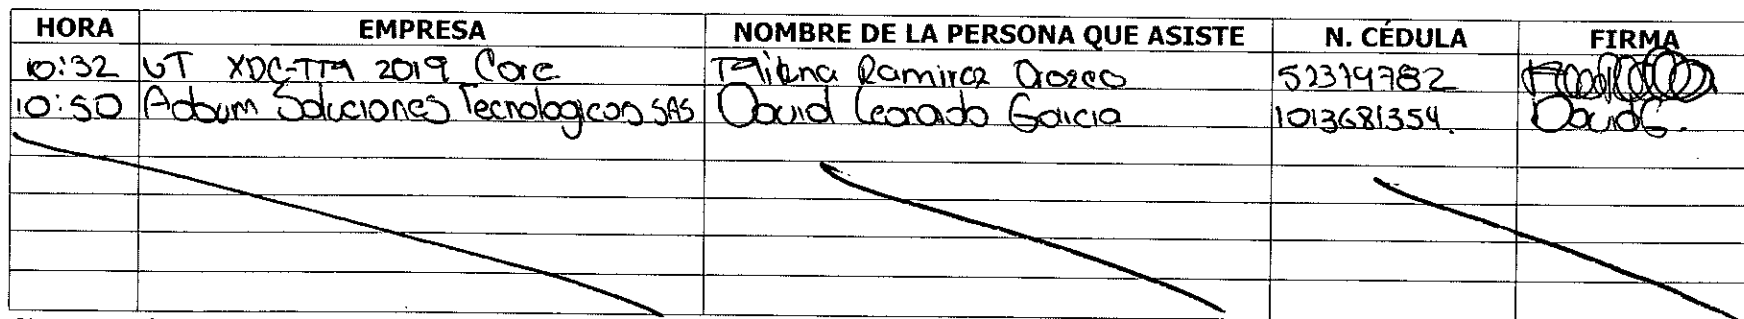 HORA EMPRESA NOMBRE DE LA PERSONA QUE ASISTE N. CÉDULA FIRMA
10:32 UT XDC-TTA 2019 Core Milena Ramirez Orozco 52319782
10:50 Soluciones Tecnologicos SAS David Leonardo Garcia 1013681354. David G.